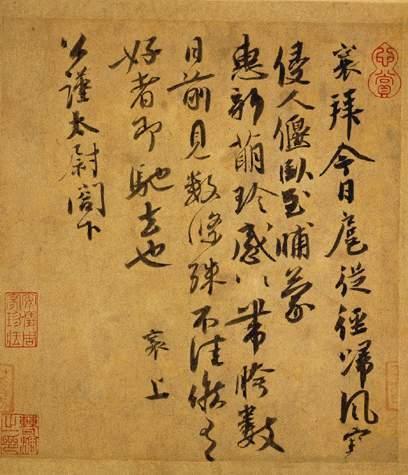 襄拜今日扈從徑歸風寒
侵人偃臥至晡蒙
惠新萌珍感〻帶胯數
日前見數條殊不佳候有
好者即馳去也 襄上
公謹太尉閤下
心賞
安儀周家珍藏